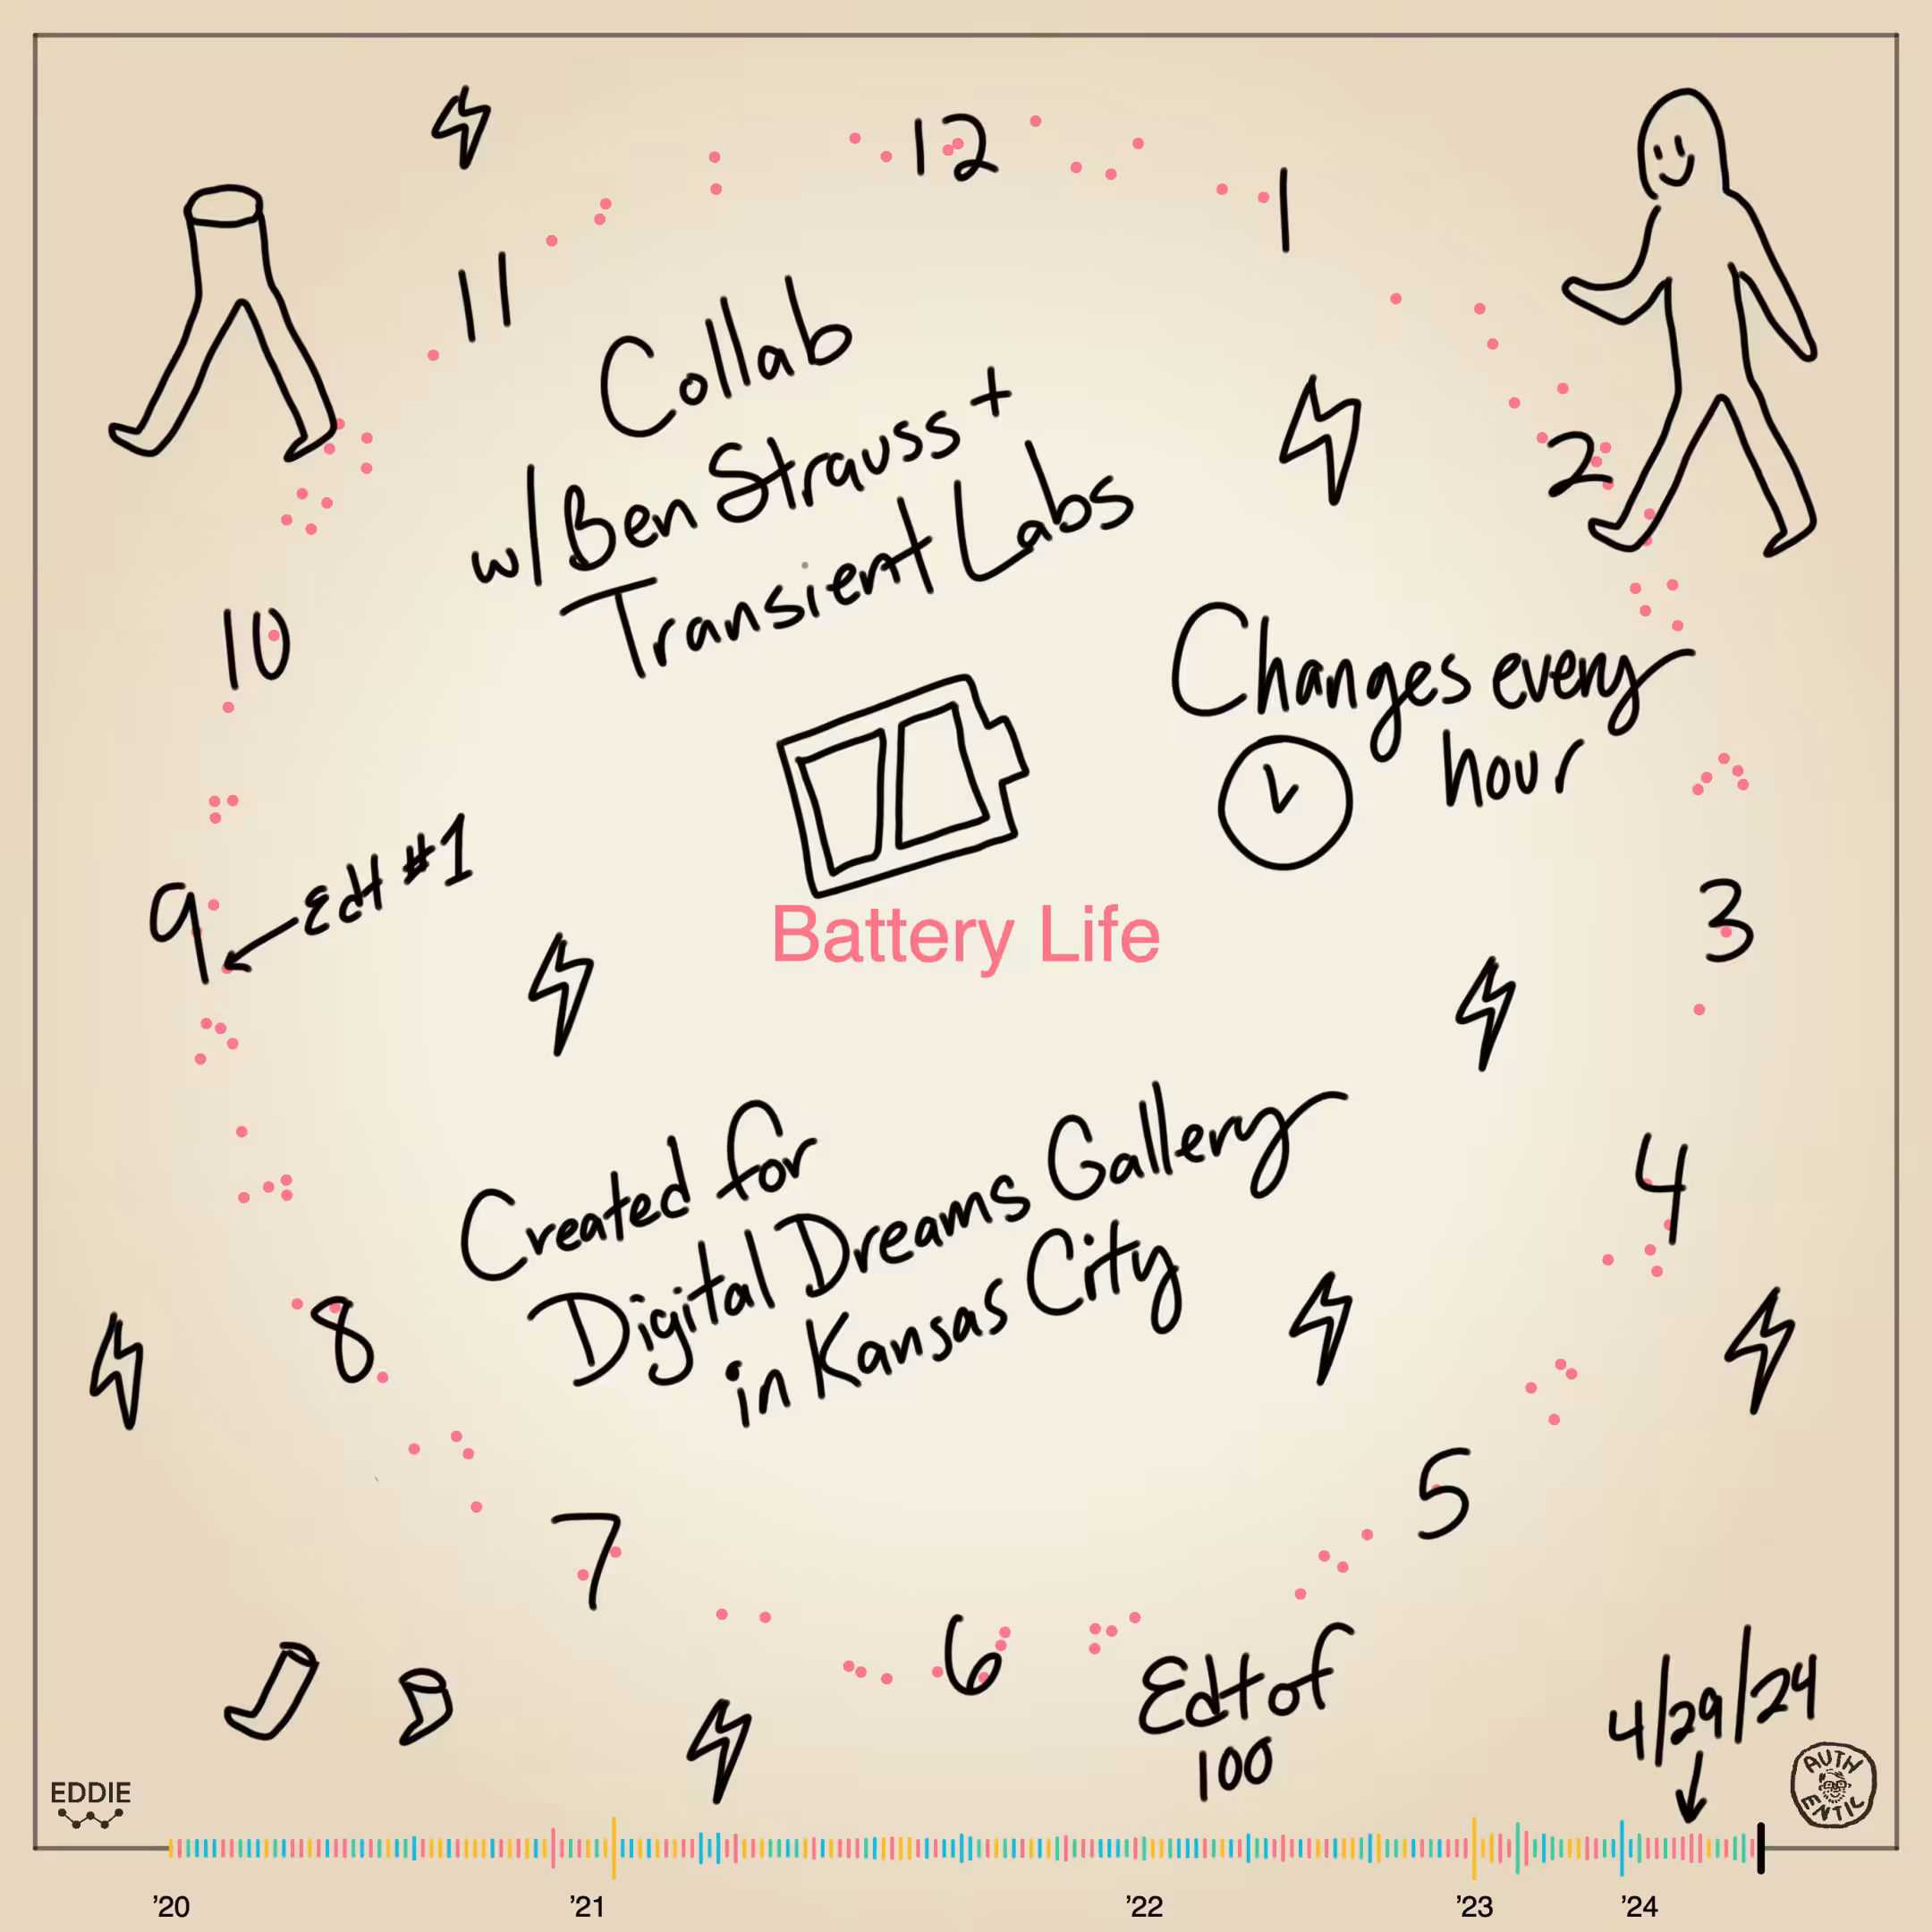 12
1
11
Collab
w/ Ben Strauss +
Transient Labs
2
10
Changes every
hour
9
Edt #1
3
Battery Life
4
Created for
Digital Dreams Gallery
in Kansas City
8
5
7
6
Edt of
100
4/29/24
EDDIE
AUTH
ENTIC
'20 '21 '22 '23 '24